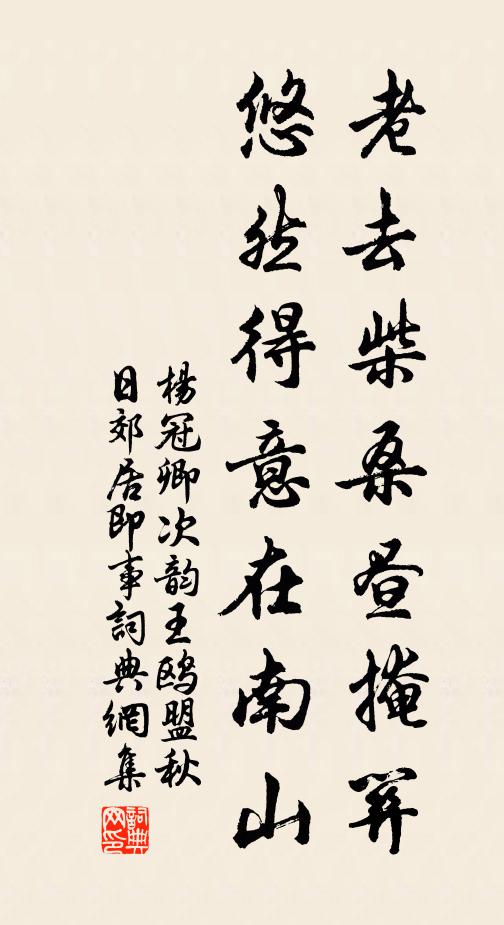 老去柴桑昼掩關
悠然得意在南山
楊冠卿次韵王鷗盟秋
日郊居即事詞典網集
詞典
网印